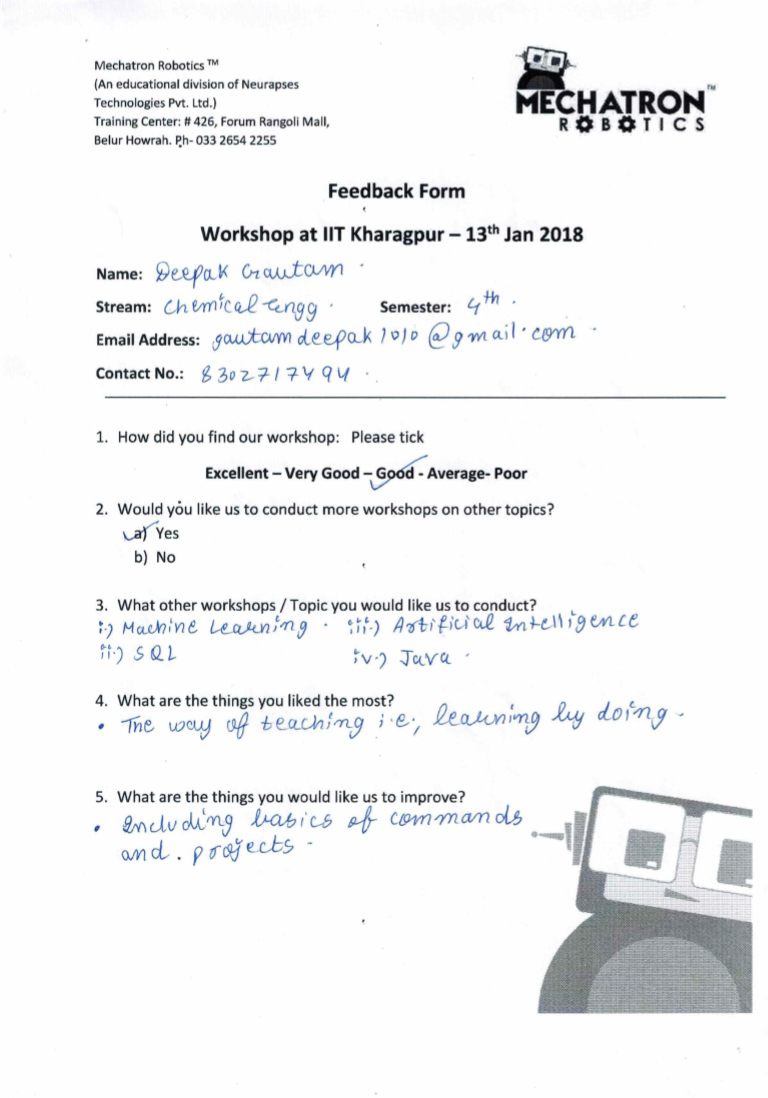 Mechatron Robotics ™
(An educational division of Neurapses
Technologies Pvt. Ltd.)
Training Center: # 426, Forum Rangoli Mall,
Belur Howrah. Ph- 033 2654 2255
MECHATRON™
ROBOTICS
Feedback Form
Workshop at IIT Kharagpur – 13th Jan 2018
Name: Deepak Gautam
Stream: Chemical Engg. Semester: 4th.
Email Address: gautamdeepak1010@gmail.com
Contact No.: 8302717494
1. How did you find our workshop: Please tick
Excellent – Very Good – Good - Average- Poor
2. Would you like us to conduct more workshops on other topics?
a) Yes
b) No
3. What other workshops / Topic you would like us to conduct?
i.) Machine Learning . iii.) Artificial Intelligence
ii.) SQL iv.) Java .
4. What are the things you liked the most?
• The way of teaching i.e., learning by doing -
5. What are the things you would like us to improve?
• Including basics of commands
and . projects -